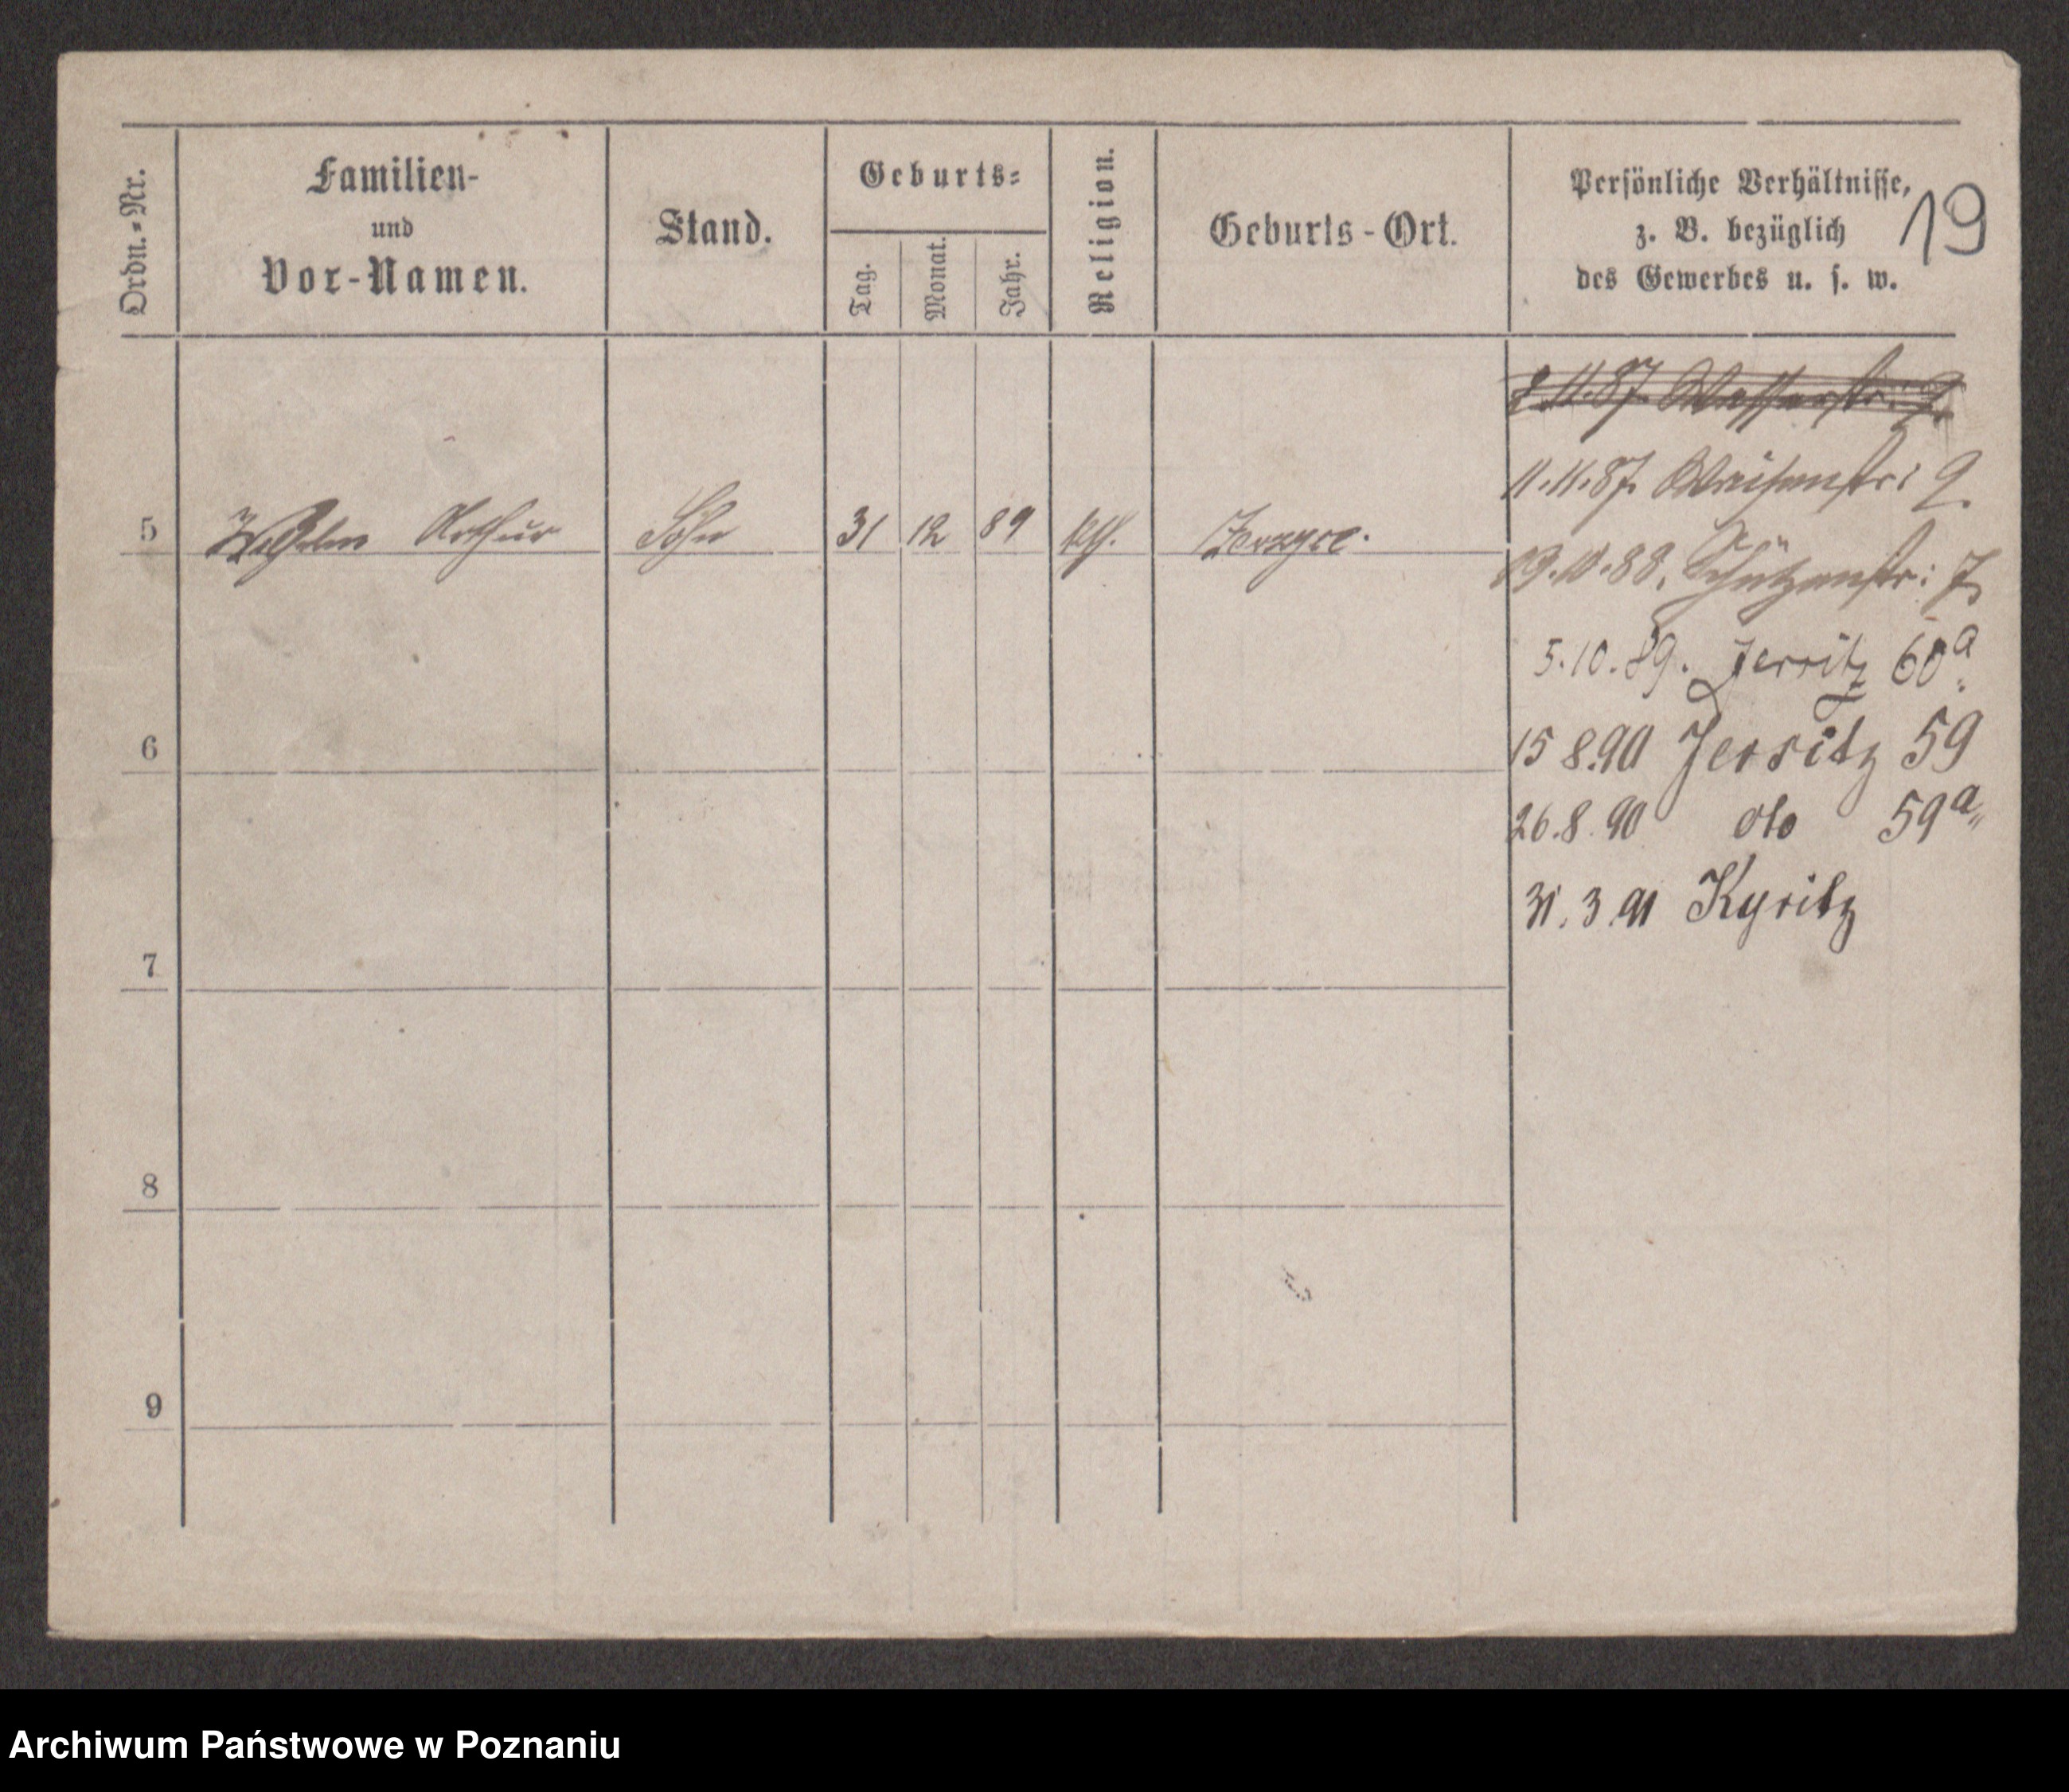 Ordn.-Nr.
Familien-
und
Vor-Namen.
Stand.
Geburts-
Tag.
Monat.
Jahr.
Religion.
Geburts-Ort.
Persönliche Verhältnisse,
z. B. bezüglich
des Gewerbes u. s. w.
19
2.11.87. Wasserstr: 9.
11.11.87. Waisenstr: 9.
5 Wilhelm Arthur Sohn 31 12 89 Jerzyce.
10.88. Schützenstr: 7.
5.10.89. Jersitz 60a
15 8.90 Jersitz 59
6
26.8.90 dto 59a
31.3.91 Kyritz
7
8
9
Archiwum Państwowe w Poznaniu